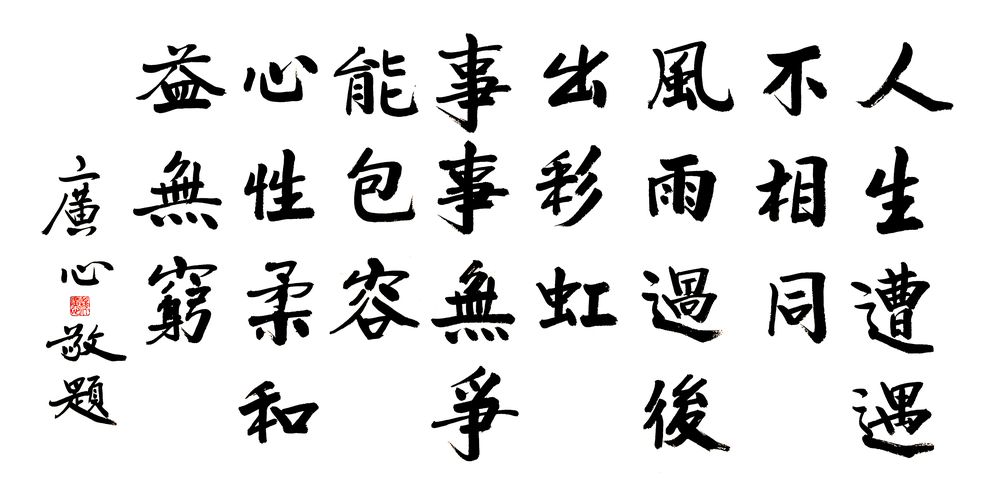 人生遭遇
不相同
風雨過後
出彩虹
事事無爭
能包容
心性柔和
益無窮
廣心敬題